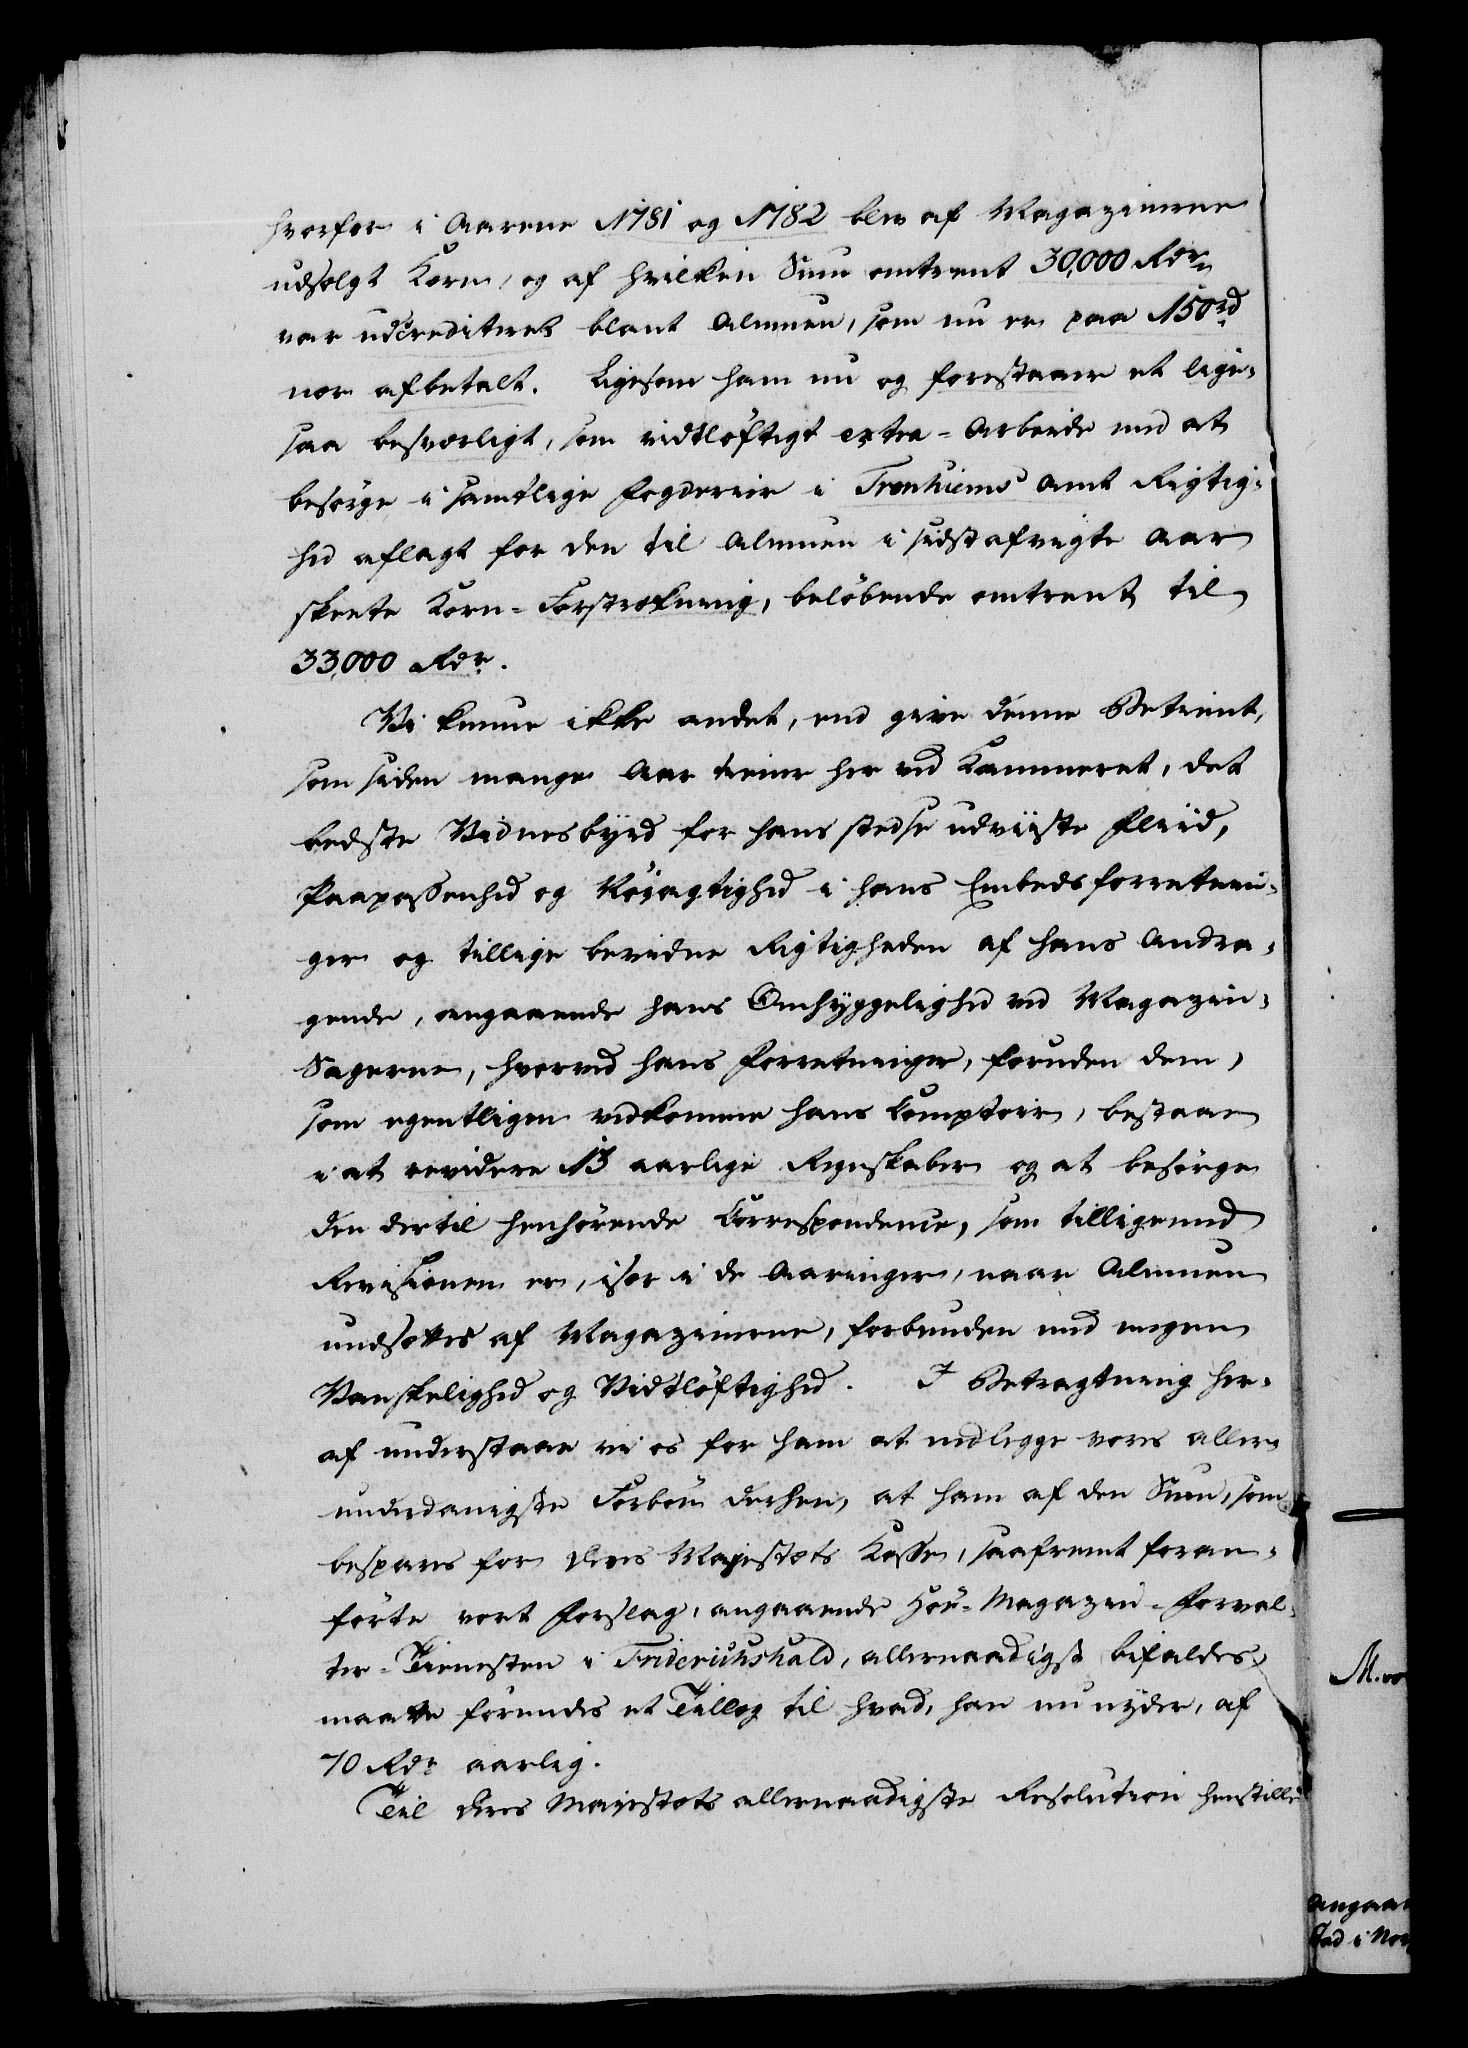 hvorfor i Aarene 1781 og 1782 blev af Magazinerne
udsolgt Korn, og af hvilken Sum omtrent 30,000 Rdr
var udcrediteret blant Almuen, som nu er paa 150 rd
nær afbetalt. Ligesom ham nu og forestaaer et lige-
saa besværligt, som vidtløftigt extra-Arbeide med at
besørge i samtlige Fogderier i Tronhiems Amt Rigtig-
hed aflagt for den til Almuen i sidstafvigte Aar
skeete Korn-Forstrækning, beløbende omtrent til
33,000 Rdr.
Vi kunne ikke andet, end give denne Betient,
som siden mange Aar tiener her ved Kammeret, det
bedste Vidnesbyrd for hans stedse udviiste Fliid,
Paapassenhed og Nøiagtighed i hans Embedsforretnin-
ger og tillige bevidne Rigtigheden af hans Andra-
gende, angaaende hans Omhyggelighed ved Magazin-
Sagerne, hvorved hans Forretninger, foruden dem,
som egentligen vedkomme hans Comptoir, bestaae
i at revidere 13 aarlige Regnskaber og at besørge
den dertil henhørende Correspondence, som tilligemed
Revisionen er, især i de Aaringer, naar Almuen
undsættes af Magazinerne, forbunden med megen
Vanskelighed og Vidtløftighed. I Betragtning her-
af understaae vi os for ham at nedlegge vores aller-
underdanigste Forbøn derhen, at ham af den Sum, som
bespares for Deres Majestæts Kasse, saafremt foran-
førte vort Forslag, angaaende Høe-Magazin-Forval-
ter-Tienesten i Friderichshald, allernaadigst bifaldes,
maatte forundes et Tillæg til hvad, han nu nyder, af
70 Rdr aarlig.
Til Deres Majestæts allernaadigste Resolution henstille
M.
angaa
Tad i Nor